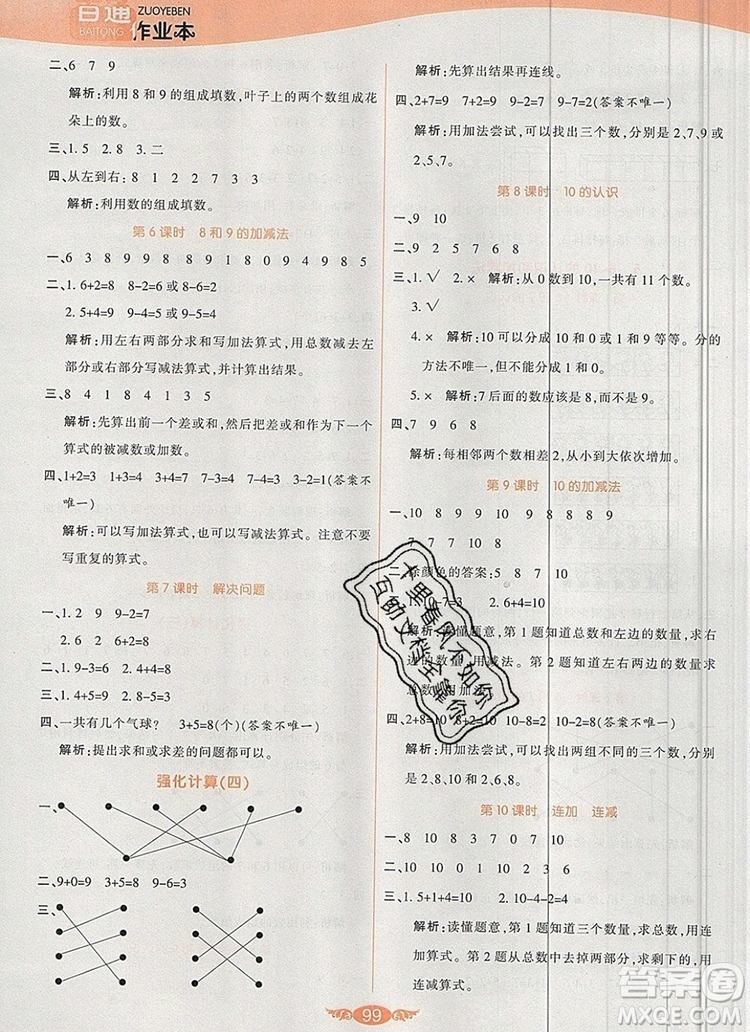 百通
BAITONG
ZUOYEBEN
作业本
二、6 7 9
解析:利用 8 和 9 的组成填数,叶子上的两个数组成花
朵上的数。
三、1. 5 2. 8 3. 二
四、从左到右: 8 1 2 2 7 3 3
解析:利用数的组成填数。
第 6 课时 8 和 9 的加减法
一、6 3 8 9 8 9 8 9 1 8 0 9 4 9 8 5
二、1. 6+2=8 8-2=6 或 8-6=2
2. 5+4=9 9-4=5 或 9-5=4
解析:用左右两部分求和写加法算式,用总数减去左
部分或右部分写减法算式,并计算出结果。
三、8 4 1 8 4 1 3 5
解析:先算出前一个差或和,然后把差或和作为下一个
算式的被减数或加数。
四、1+2=3 1+3=4 3+4=7 7-3=4 3-2=1(答案不
唯一)
解析:可以写加法算式,也可以写减法算式。注意不要
写重复的算式。
第 7 课时 解决问题
一、1. 2 9 9-2=7
2. 6 2 6+2=8
二、1. 9-3=6 2. 5+4=9
三、1. 9-4=5 2. 8-5=3
四、一共有几个气球? 3+5=8(个)(答案不唯一)
解析:提出求和或求差的问题都可以。
强化计算(四)
一、
二、9+0=9 3+5=8 9-6=3
三、
解析:先算出结果再连线。
四、2+7=9 7+2=9 9-2=7 9-7=2(答案不唯一)
解析:用加法尝试,可以找出三个数,分别是 2,7,9 或
2,5,7。
第 8 课时 10 的认识
一、9 10
二、9 2 5 7 6 8
三、1. √ 2. × 解析:从 0 数到 10,一共有 11 个数。
3. √
4. × 解析:10 可以分成 10 和 0 或 1 和 9 等等。分的
方法不唯一,但不能分成 1 和 8。
5. × 解析:7 后面的数应该是 8,而不是 9。
四、7 9 6 8
解析:每相邻两个数相差 2,从小到大依次增加。
第 9 课时 10 的加减法
一、10 8 9 9 10 9 8 8 8 9
7 7 7 10 8
二、涂颜色的答案:5 8 7 10
2. 6+4=10
解析:读懂题意,第 1 题知道总数和左边的数量,求右
边的数量,用减法。第 2 题知道左右两边的数量求总
数,用加法。
四、2+8=10 8+2=10 10-8=2 10-2=8(答案不唯一)
解析:用加法尝试,可以找出两组不同的三个数,分别
是 2,8,10 或 2,6,8。
第 10 课时 连加 连减
一、8 10 8 3 7 0 7 10
二、10 10 0 1 10 2 3 6
三、1. 5+1+3=9 2. 10-4-2=4
解析:读懂题意,第 1 题知道三个数量,求总数,用连
加算式。第 2 题从总数中去掉两部分,求剩下部分,用
连减算式。
十里春风不如你
互助文档全靠你
99
答案圈
MXQE.COM